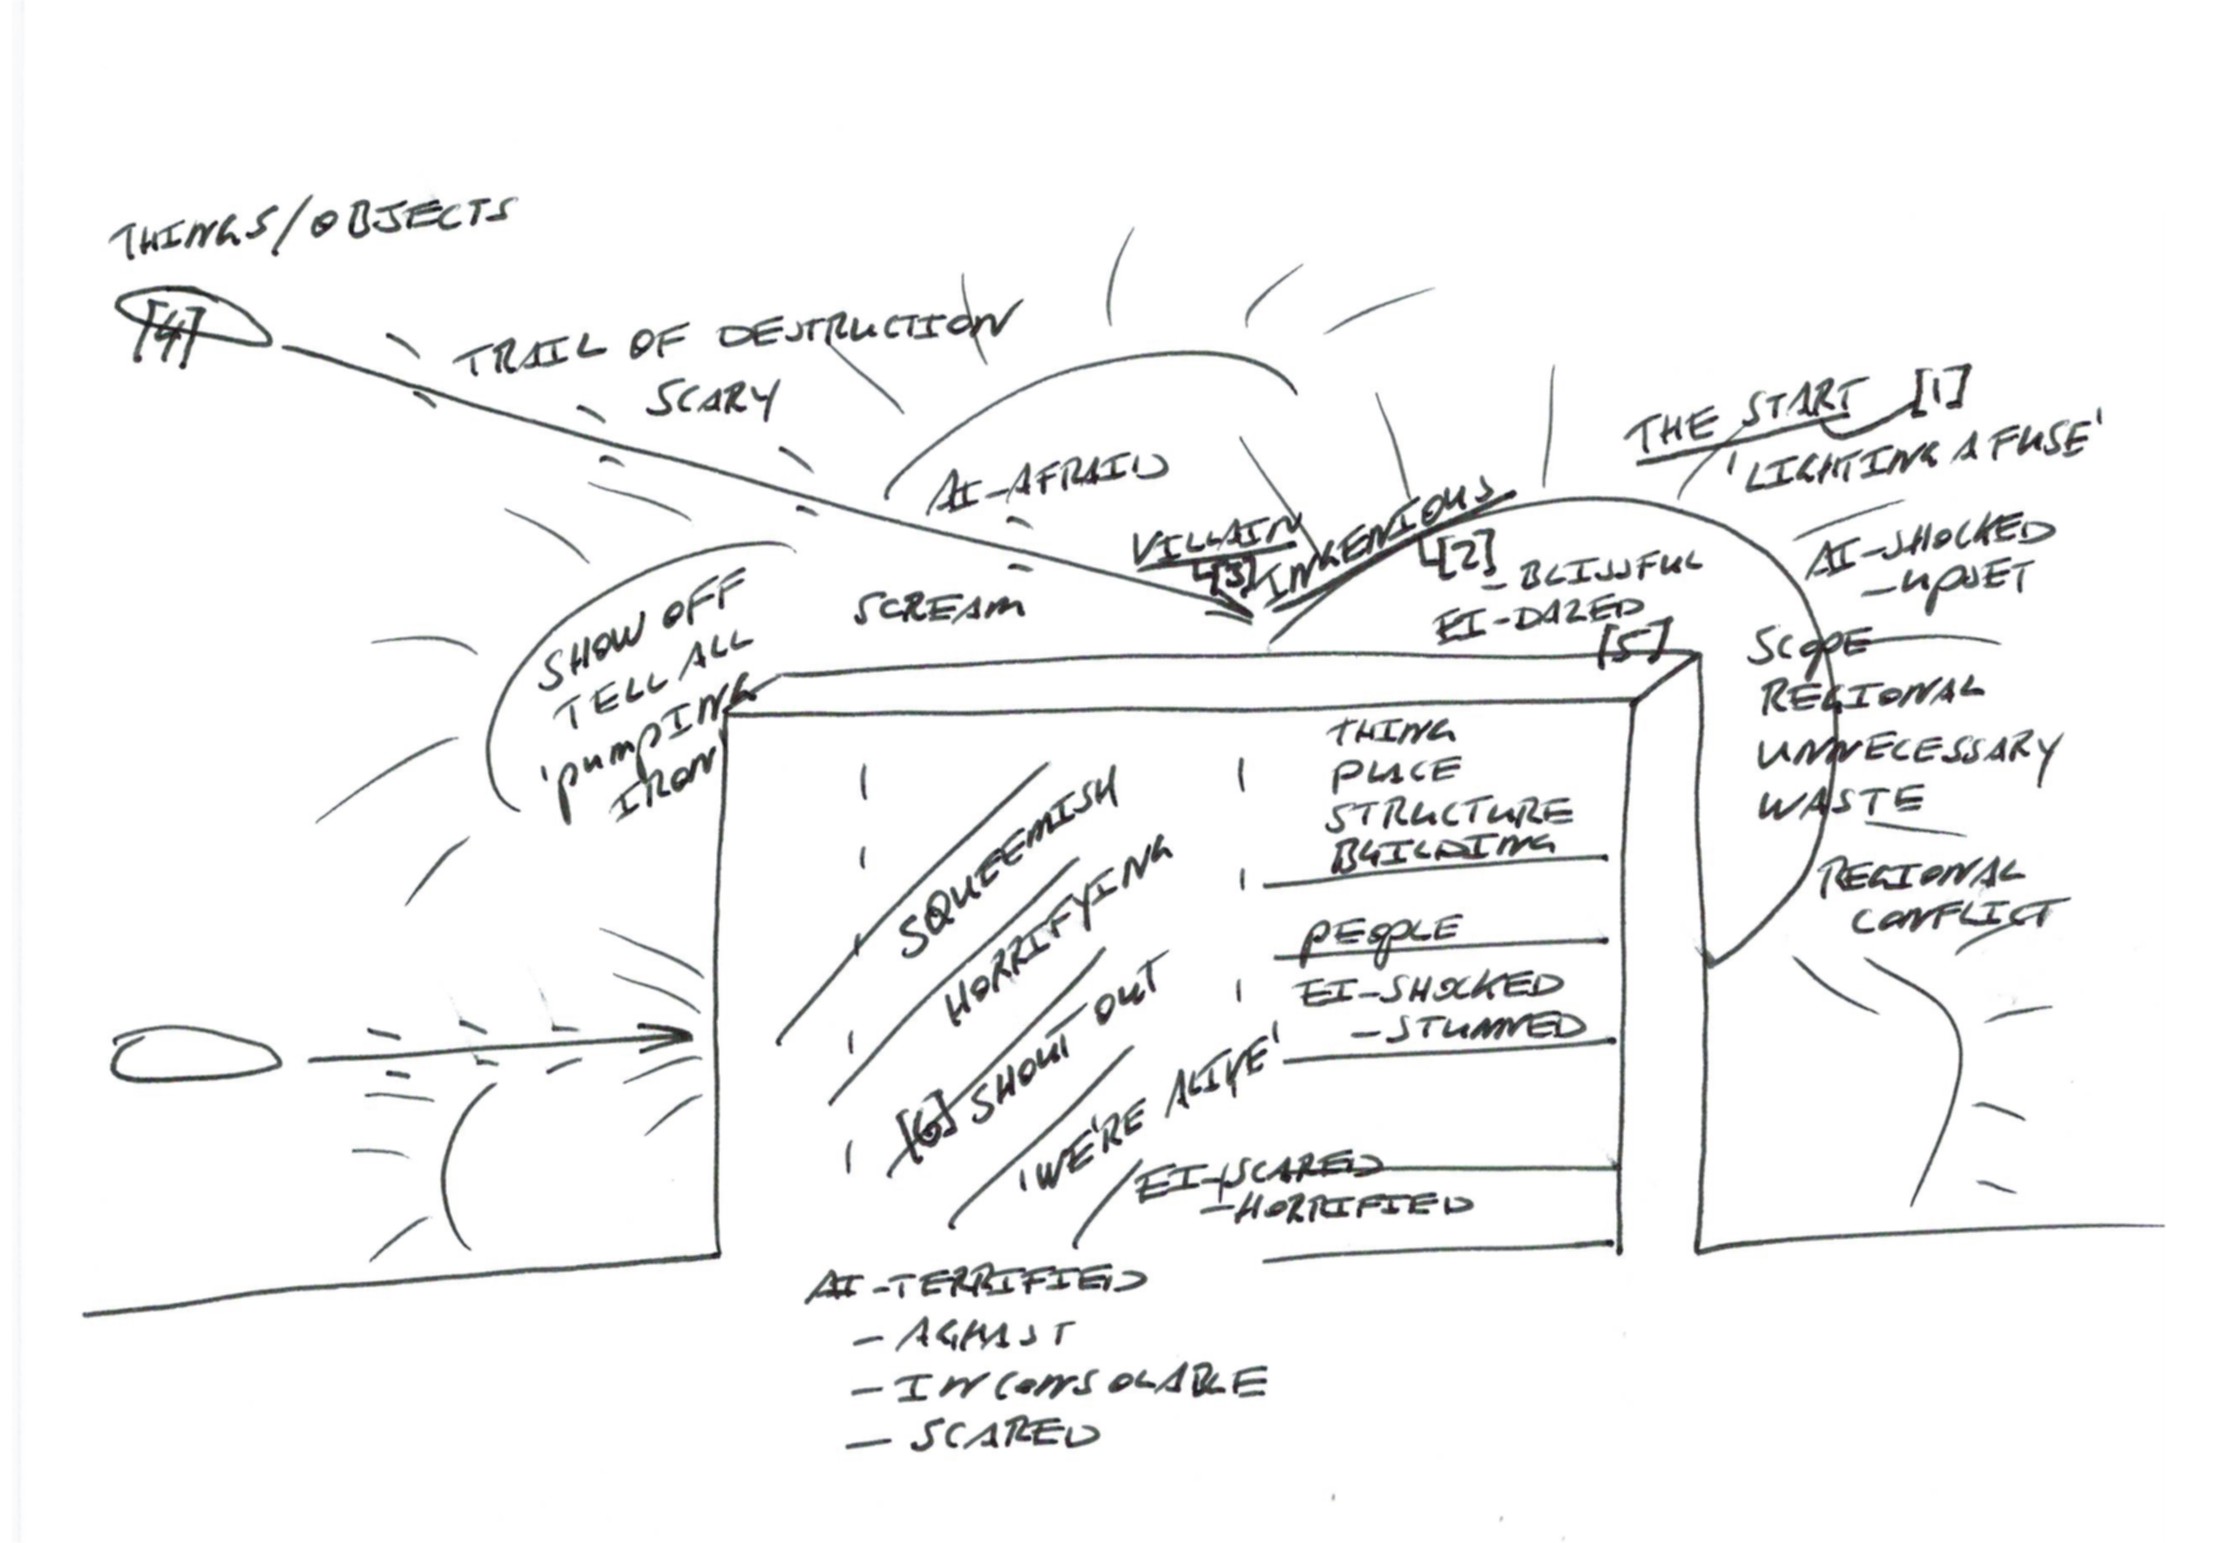 THINGS/OBJECTS
[4]
TRAIL OF DESTRUCTION
SCARY
AI-AFRAID
THE START [1]
'LIGHTING A FUSE'
VILLAIN
[3]
INGENIOUS
[2]
- BLISSFUL
EI-DAZED
[5]
AI-SHOCKED
-UPSET
SCOPE
REGIONAL
UNNECESSARY
WASTE
REGIONAL
CONFLICT
SCREAM
SHOW OFF
TELL ALL
'PUMPING
IRON'
SQUEEMISH
HORRIFYING
[6] SHOUT OUT
'WE'RE ALIVE'
THING
PLACE
STRUCTURE
BUILDING
PEOPLE
EI-SHOCKED
-STUNNED
EI-SCARED
-HORRIFIED
AI-TERRIFIED
- AGHAST
- INCONSOLABLE
- SCARED